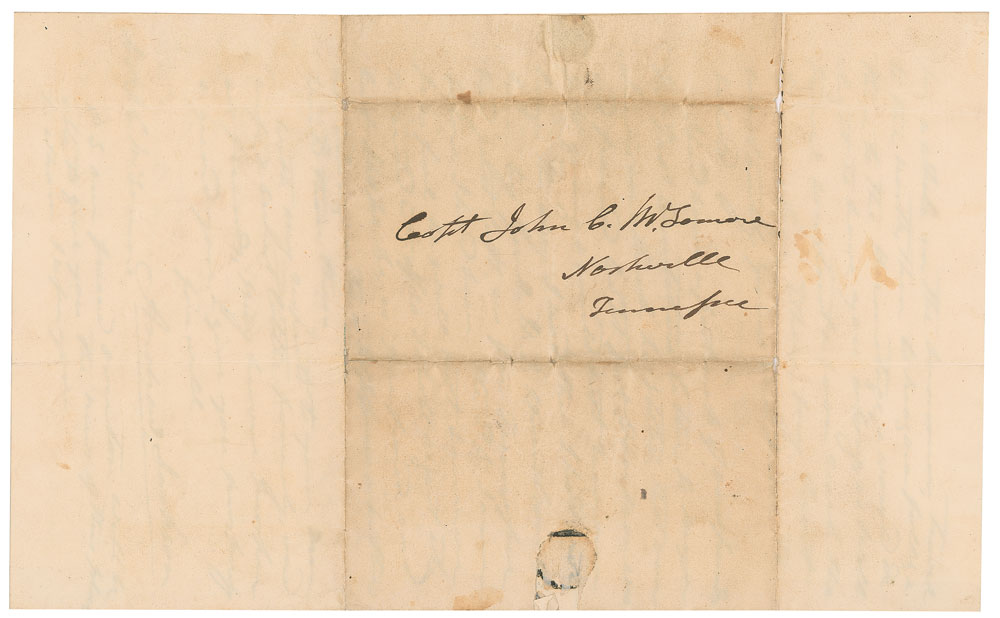 Capt John C. McLemore
Nashville
Tennessee